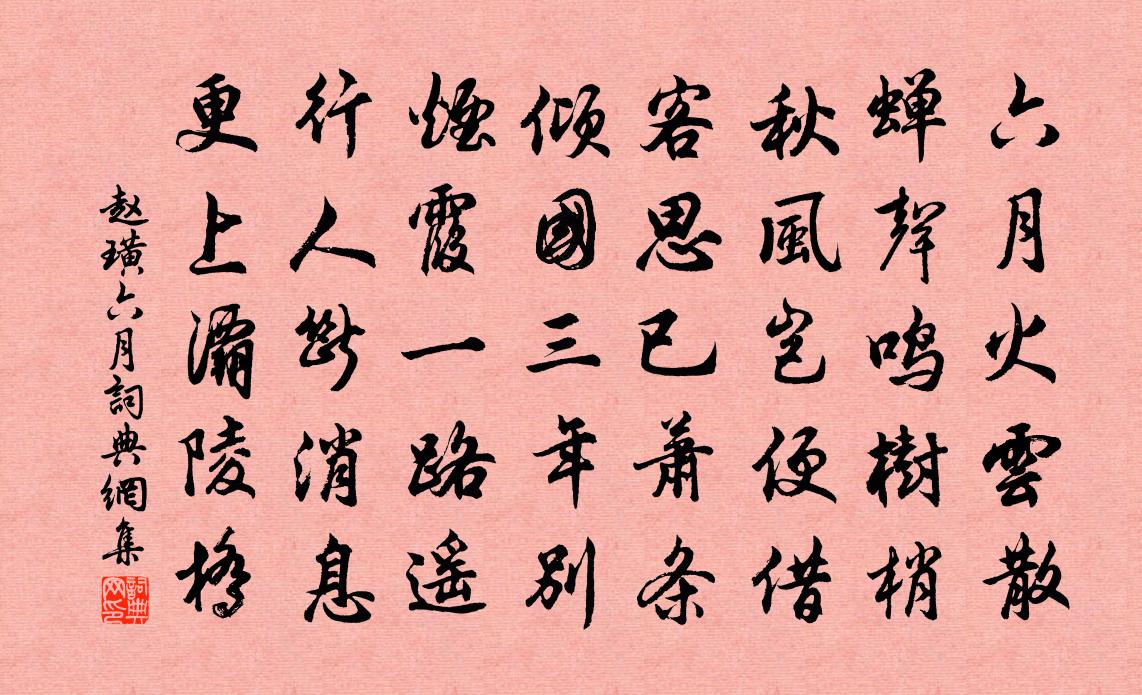 六月火雲散
蝉聲鳴樹梢
秋風豈便借
客思已蕭条
傾國三年別
煙霞一路遥
行人斷消息
更上灞陵橋
赵璜六月詞典網集
詞典网印